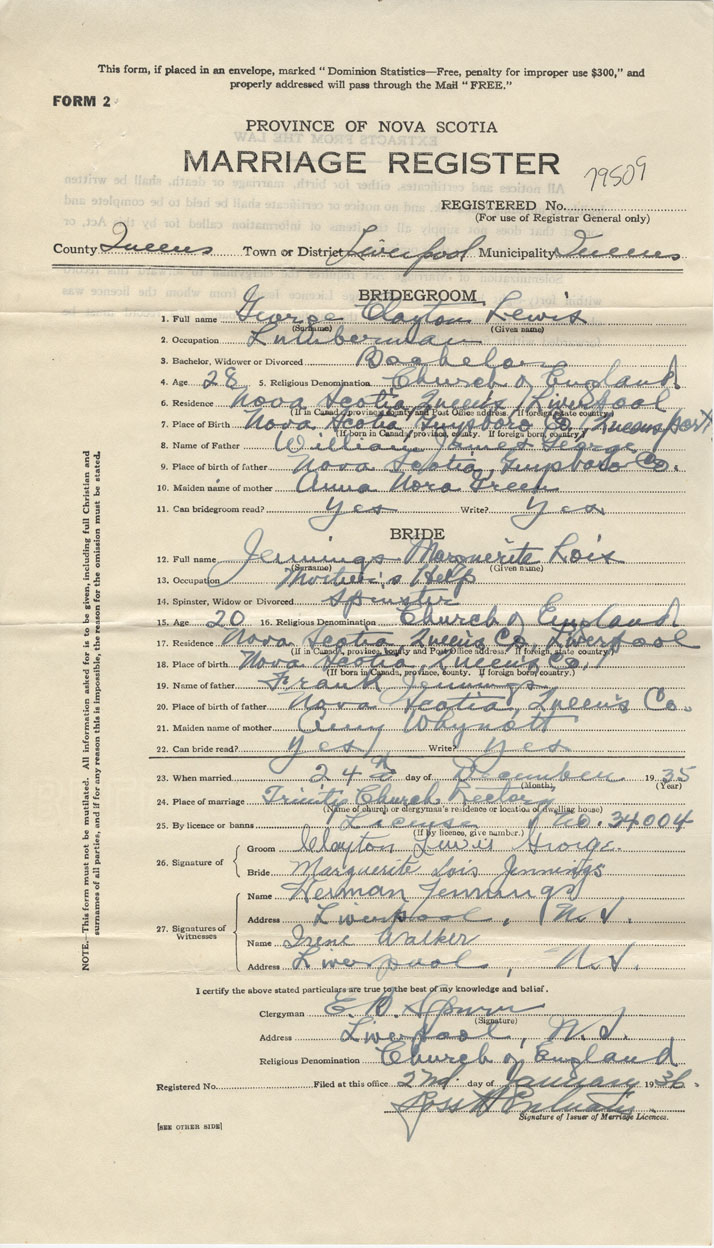 This form, if placed in an envelope, marked "Dominion Statistics—Free, penalty for improper use $300," and
properly addressed will pass through the Mail "FREE."
FORM 2
PROVINCE OF NOVA SCOTIA
MARRIAGE REGISTER
79509
REGISTERED No.
(For use of Registrar General only)
County Queens Town or District Liverpool Municipality Queens
BRIDEGROOM
1. Full name George Clayton Lewis
(Surname) (Given name)
2. Occupation Lumberman
3. Bachelor, Widower or Divorced Bachelor
4. Age 28 5. Religious Denomination Church of England
6. Residence Nova Scotia Queens Liverpool
(If in Canada, province, county and Post Office address. If foreign, state country.)
7. Place of Birth Nova Scotia Guysboro Co, Queensport
(If born in Canada, province, county. If foreign born, country.)
8. Name of Father William James George
9. Place of birth of father Nova Scotia, Guysboro Co.
10. Maiden name of mother Anna Nora Green
11. Can bridegroom read? Yes Write? Yes
BRIDE
12. Full name Jennings Marguerite Lois
(Surname) (Given name)
13. Occupation Mother's Help
14. Spinster, Widow or Divorced Spinster
15. Age 20 16. Religious Denomination Church of England
17. Residence Nova Scotia Queens Co, Liverpool
(If in Canada, province, county and Post Office address. If foreign, state country.)
18. Place of birth Nova Scotia, Queens Co,
(If born in Canada, province, county. If foreign born, country.)
19. Name of father Frank Jennings
20. Place of birth of father Nova Scotia, Queen's Co.
21. Maiden name of mother Amy Whynott
22. Can bride read? yes Write? yes
23. When married 24th day of December 1935
(Month) (Year)
24. Place of marriage Trinity Church Rectory
(Name of church or clergyman's residence or location of dwelling house)
25. By licence or banns License No. 34004
(If by licence, give number.)
26. Signature of
Groom Clayton Lewis George.
Bride Marguerite Lois Jennings
27. Signatures of Witnesses
Name Herman Jennings
Address Liverpool, N.S.
Name Irene Walker
Address Liverpool, N.S.
I certify the above stated particulars are true to the best of my knowledge and belief.
Clergyman E. B. Spurr
(Signature)
Address Liverpool, N.S.
Religious Denomination Church of England
Registered No. Filed at this office 2nd day of January 1936.
Signature of Issuer of Marriage Licences.
[SEE OTHER SIDE]
NOTE.—This form must not be mutilated. All information asked for is to be given, including full Christian and
surnames of all parties, and if for any reason this is impossible, the reason for the omission must be stated.